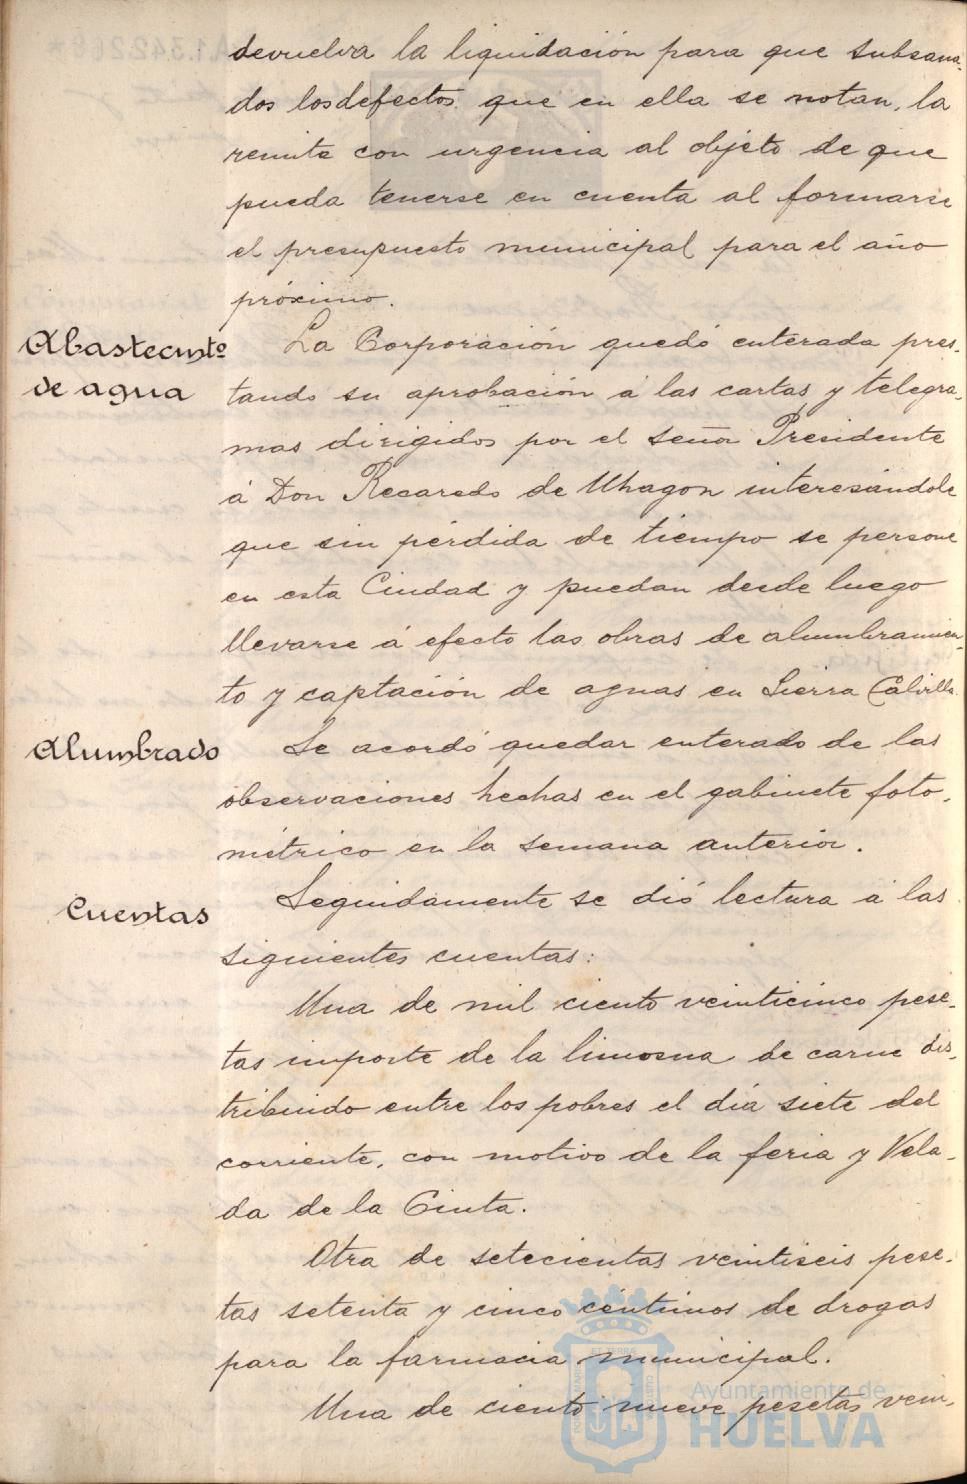 devuelva la liquidación para que subsana-
dos los defectos que en ella se notan, la
remita con urgencia al objeto de que
pueda tenerse en cuenta al formarse
el presupuesto municipal para el año
próximo.
Abastecimto
de agua
La Corporación quedó enterada pres-
tando su aprobación á las cartas y telegra-
mas dirigidos por el señor Presidente
á Don Recaredo de Uhagon interesándole
que sin pérdida de tiempo se persone
en esta Ciudad y puedan desde luego
llevarse á efecto las obras de alumbramien-
to y captación de aguas en Sierra Calvilla.
Alumbrado
Se acordó quedar enterado de las
observaciones hechas en el gabinete foto-
métrico en la semana anterior.
Cuentas
Seguidamente se dió lectura á las
siguientes cuentas:
Una de mil ciento veinticinco pese-
tas importe de la limosna de carne dis-
tribuido entre los pobres el día siete del
corriente, con motivo de la feria y Vela-
da de la Cinta.
Otra de setecientas veintiseis pese-
tas setenta y cinco céntimos de drogas
para la farmacia municipal.
Una de ciento nueve pesetas vein-
Ayuntamiento de
HUELVA